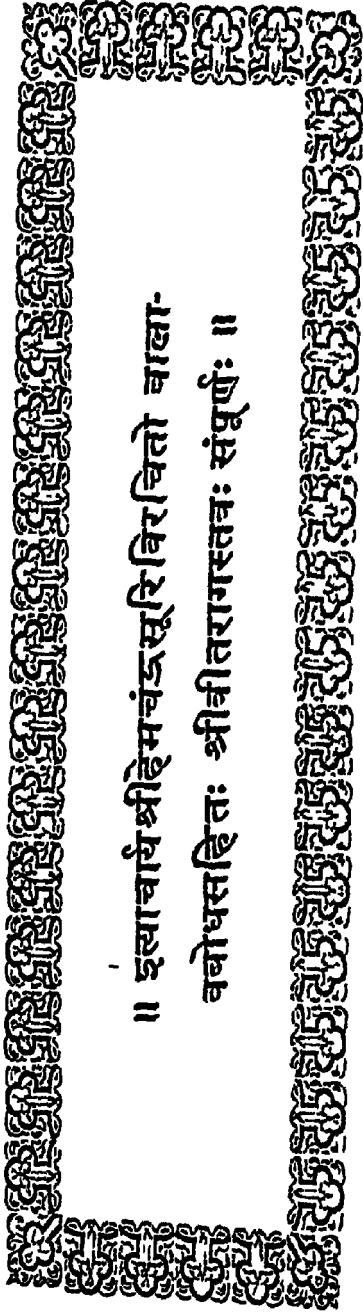 ॥ इत्याचार्यश्रीहेमचंद्रसूरिविरचितो बाला-
वबोधसहितः श्रीवीतरागस्तवः संपूर्णः ॥